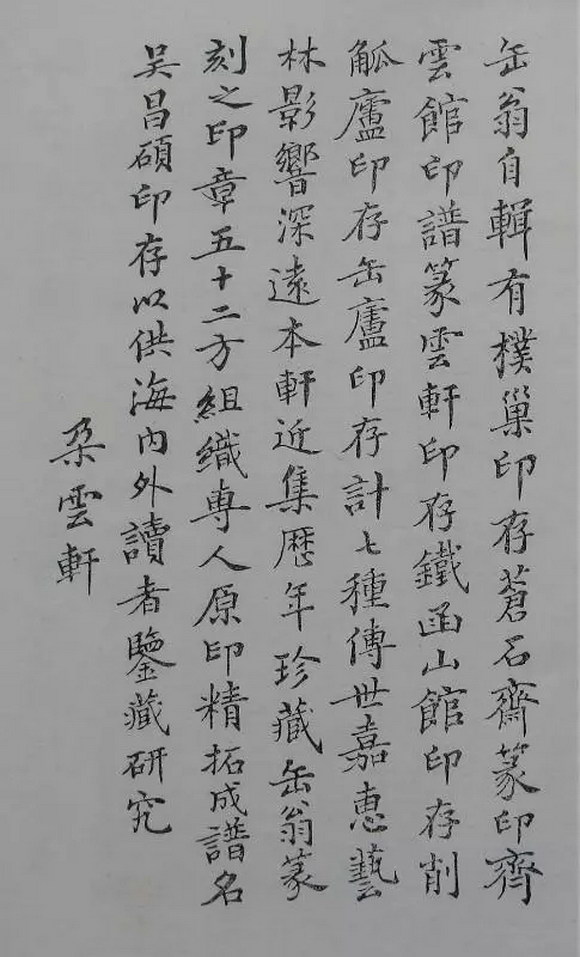 缶翁自輯有樸巢印存蒼石齋篆印齊
雲館印譜篆雲軒印存鐵函山館印存削
觚廬印存缶廬印存計七種傳世嘉惠藝
林影響深遠本軒近集歷年珍藏缶翁篆
刻之印章五十二方組織專人原印精拓成譜名
吴昌碩印存以供海内外讀者鑒藏研究
朶雲軒